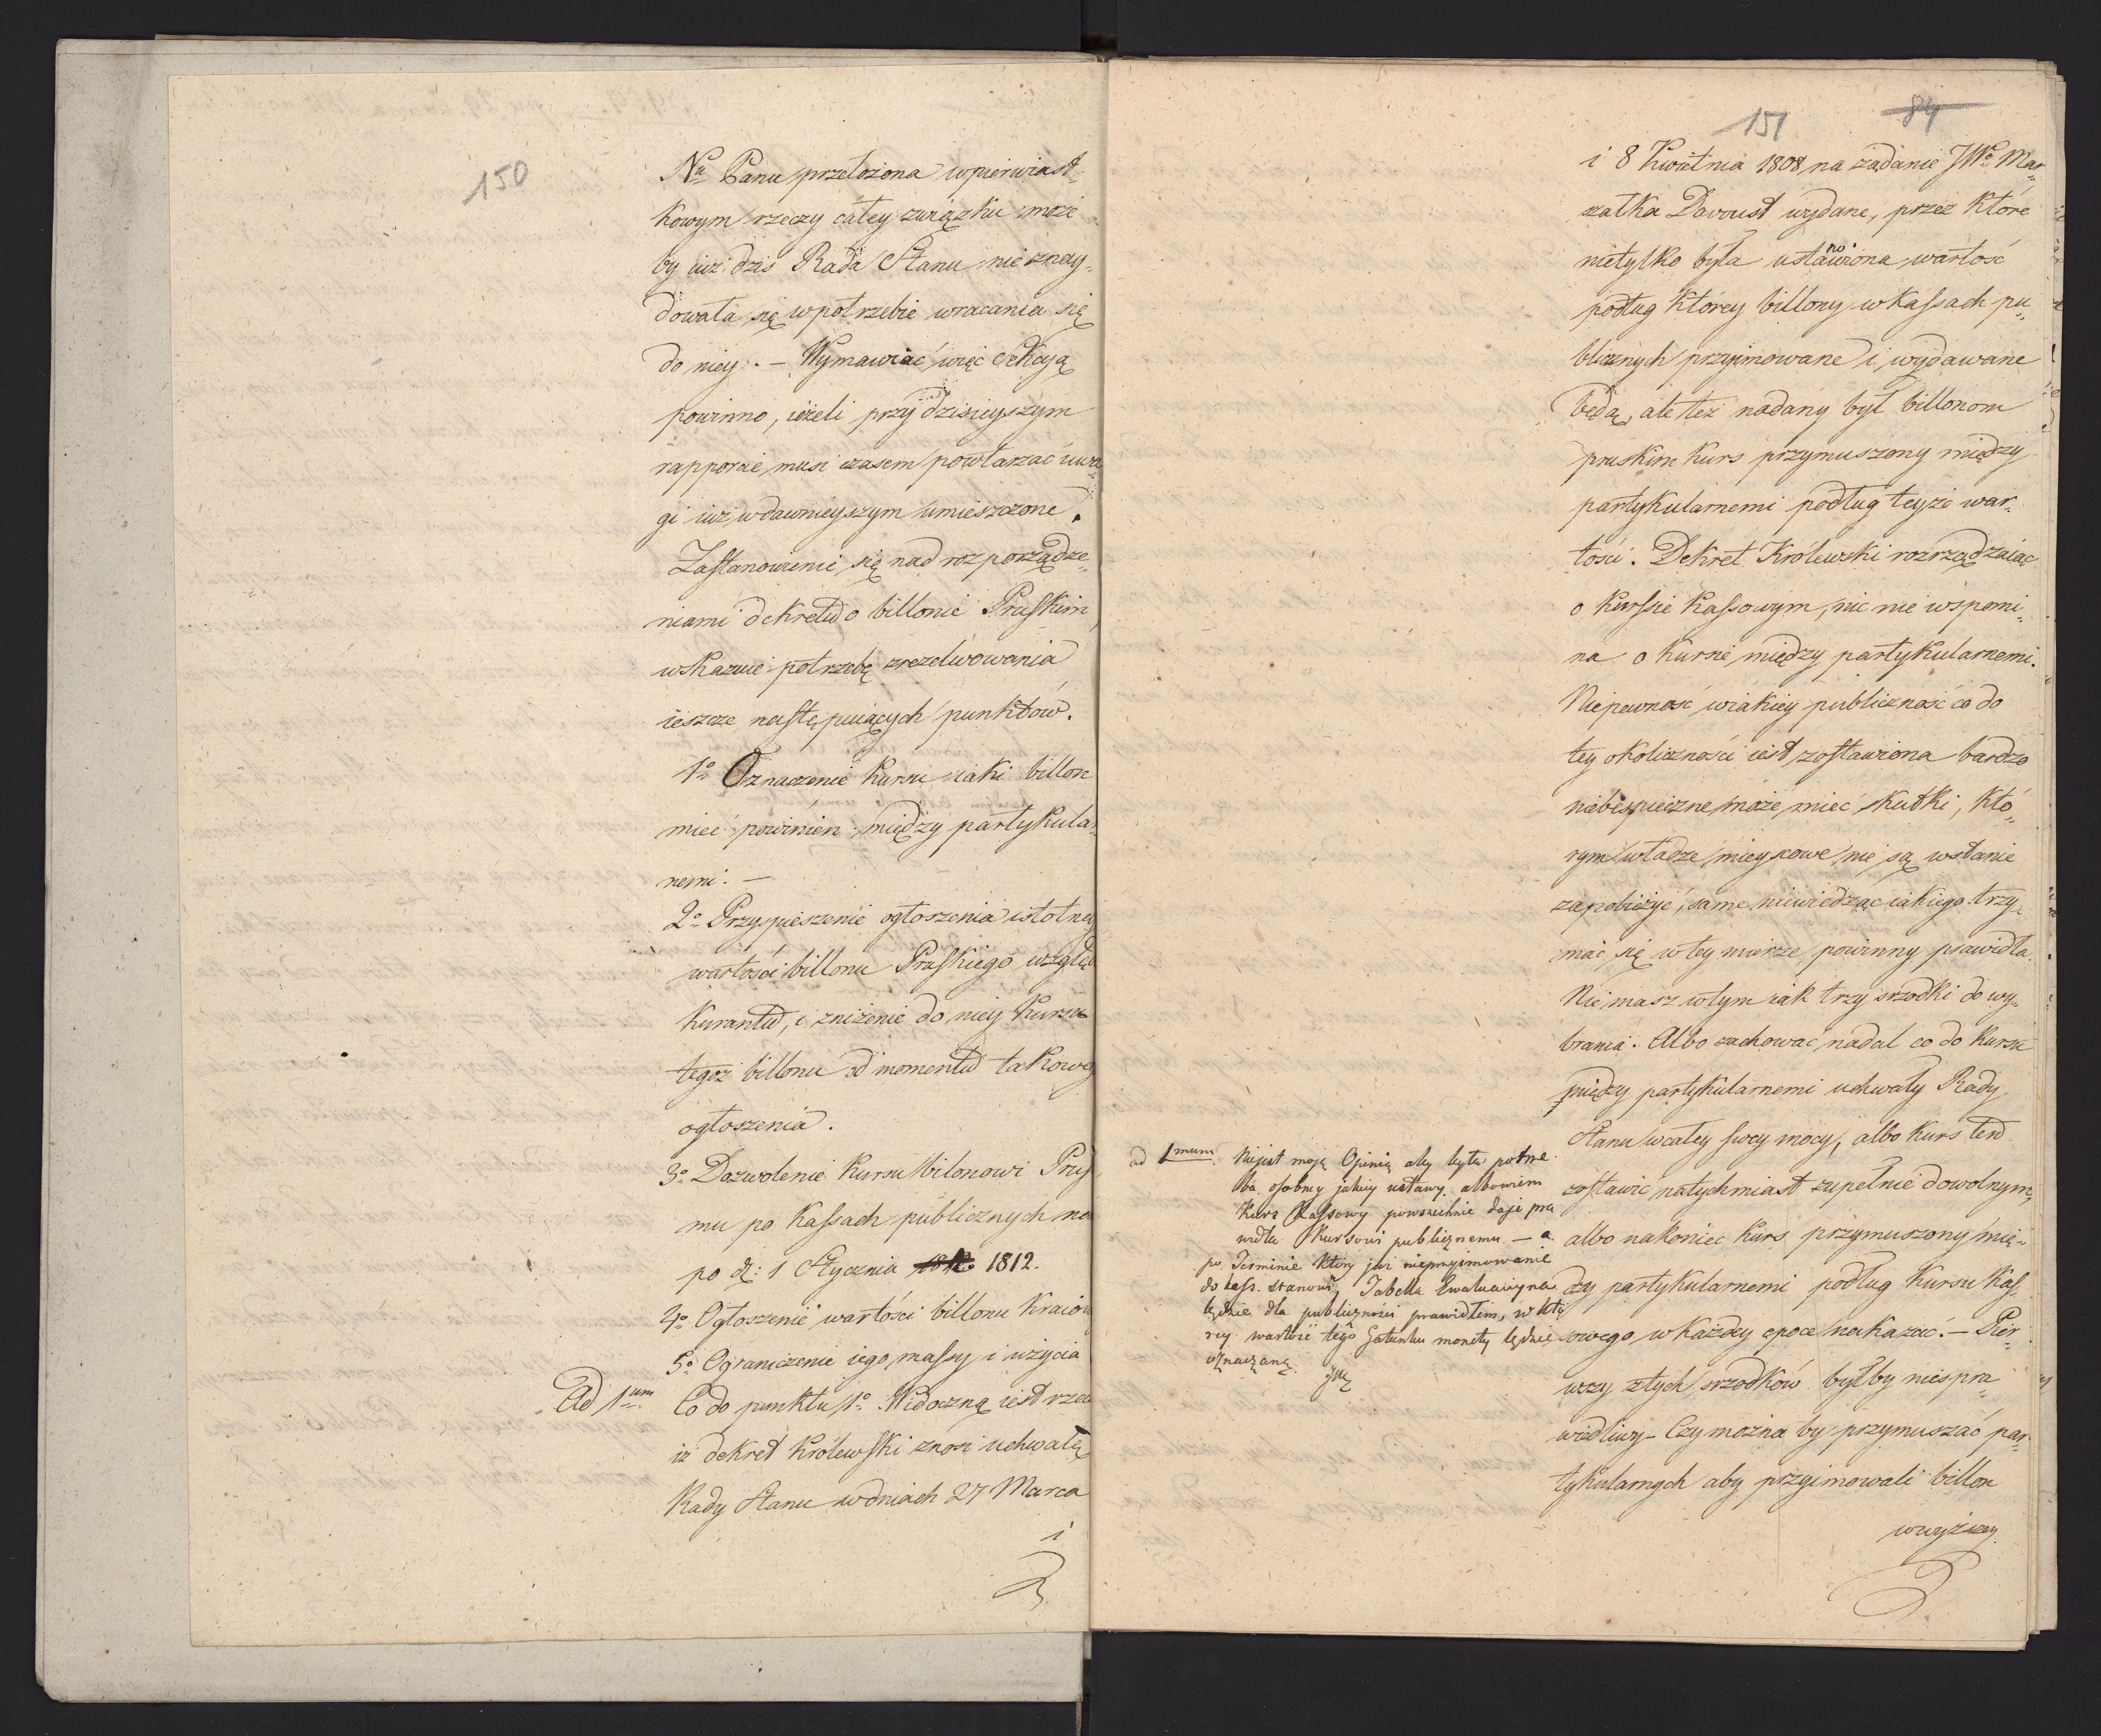 150
Na Panu przełożona w pierwiast„
kowym rzeczy całey związku może
by iuż dziś Rada Stanu nie znay„
dowała się w potrzebie wracania się
do niey. — Wymawiać więc Sekcyą
powinno, ieżeli przy dzisieyszym
rapporcie musi czasem powtarzać uwa
gi iuż w dawnieyszym umieszczone.
Zastanowienie się nad rozporządze„
niami dekretu o billonie Pruskim
wskazuie potrzebę zrezolwowania
ieszcze następuiących punktów.
1o Oznaczenie kursu iaki billon
mieć powinien między partykular
nemi. —
2o Przyspieszenie ogłoszenia istotney
wartości billonu Pruskiego wzglę
kurantu, i zniżenie do niey kursu
tegoż billonu od momentu takoweg
ogłoszenia.
3o Dozwolenie kursu bilonowi Prus
mu po kassach publicznych na
po d: 1 Stycznia 1812.
4o Ogłoszenie wartości billonu kraiow
5o Ograniczenie iego massy i użycia
Ad 1um Co do punktu 1o Widoczną iest rzecz
iż dekret Królewski znosi uchwałę
Rady Stanu w dniach 27 Marca
i
151 84
i 8 Kwietnia 1808 na żądanie JWo Mar„
szałka Davoust wydane, przez które
nietylko była ustanowiona wartość
podług którey billony w kassach pu„
blicznych przyimowane i wydawane
będą, ale też nadany był billonom
pruskim kurs przymuszony między
partykularnemi podług teyże war„
tości. Dekret Królewski rozrządzaiąc
o kursie kassowym, nic nie wspomi„
na o kursie między partykularnemi.
Niepewność w iakiey publiczność co do
tey okoliczności iest zostawiona bardzo
niebespieczne może mieć skutki, któ„
rym władze mieyscowe nie są wstanie
zapobieżyć, same niewiedząc iakiego trzy„
mać się w tey mierze powinny prawidła.
Nie masz w tym iak trzy srzodki do wy„
brania. Albo zachować nadal co do kursu
między partykularnemi uchwały Rady
Stanu w całey swey mocy, albo kurs ten
zostawić natychmiast zupełnie dowolnym,
albo nakoniec kurs przymuszony mię„
dzy partykularnemi podług kursu kas„
sowego w każdey epoce nakazać. — Pier„
wszy z tych srzodków byłby niespra„
wiedliwy — Czy można by przymuszać par„
tykularnych aby przyimowali billon
w wyższey
ad 1mum. Niejest moją Opinią aby była potrze
ba osobney jakiey ustawy albowiem
Kurs Kassowy powszechnie daje pra
widła Kursowi publicznemu — a
po Terminie który już nieprzyimowanie
do kass. stanowi, Tabella Ewaluacyjna
będzie dla publiczności prawidłem, w któ
rey wartość tego Gatunku monety będzie
oznaczaną.